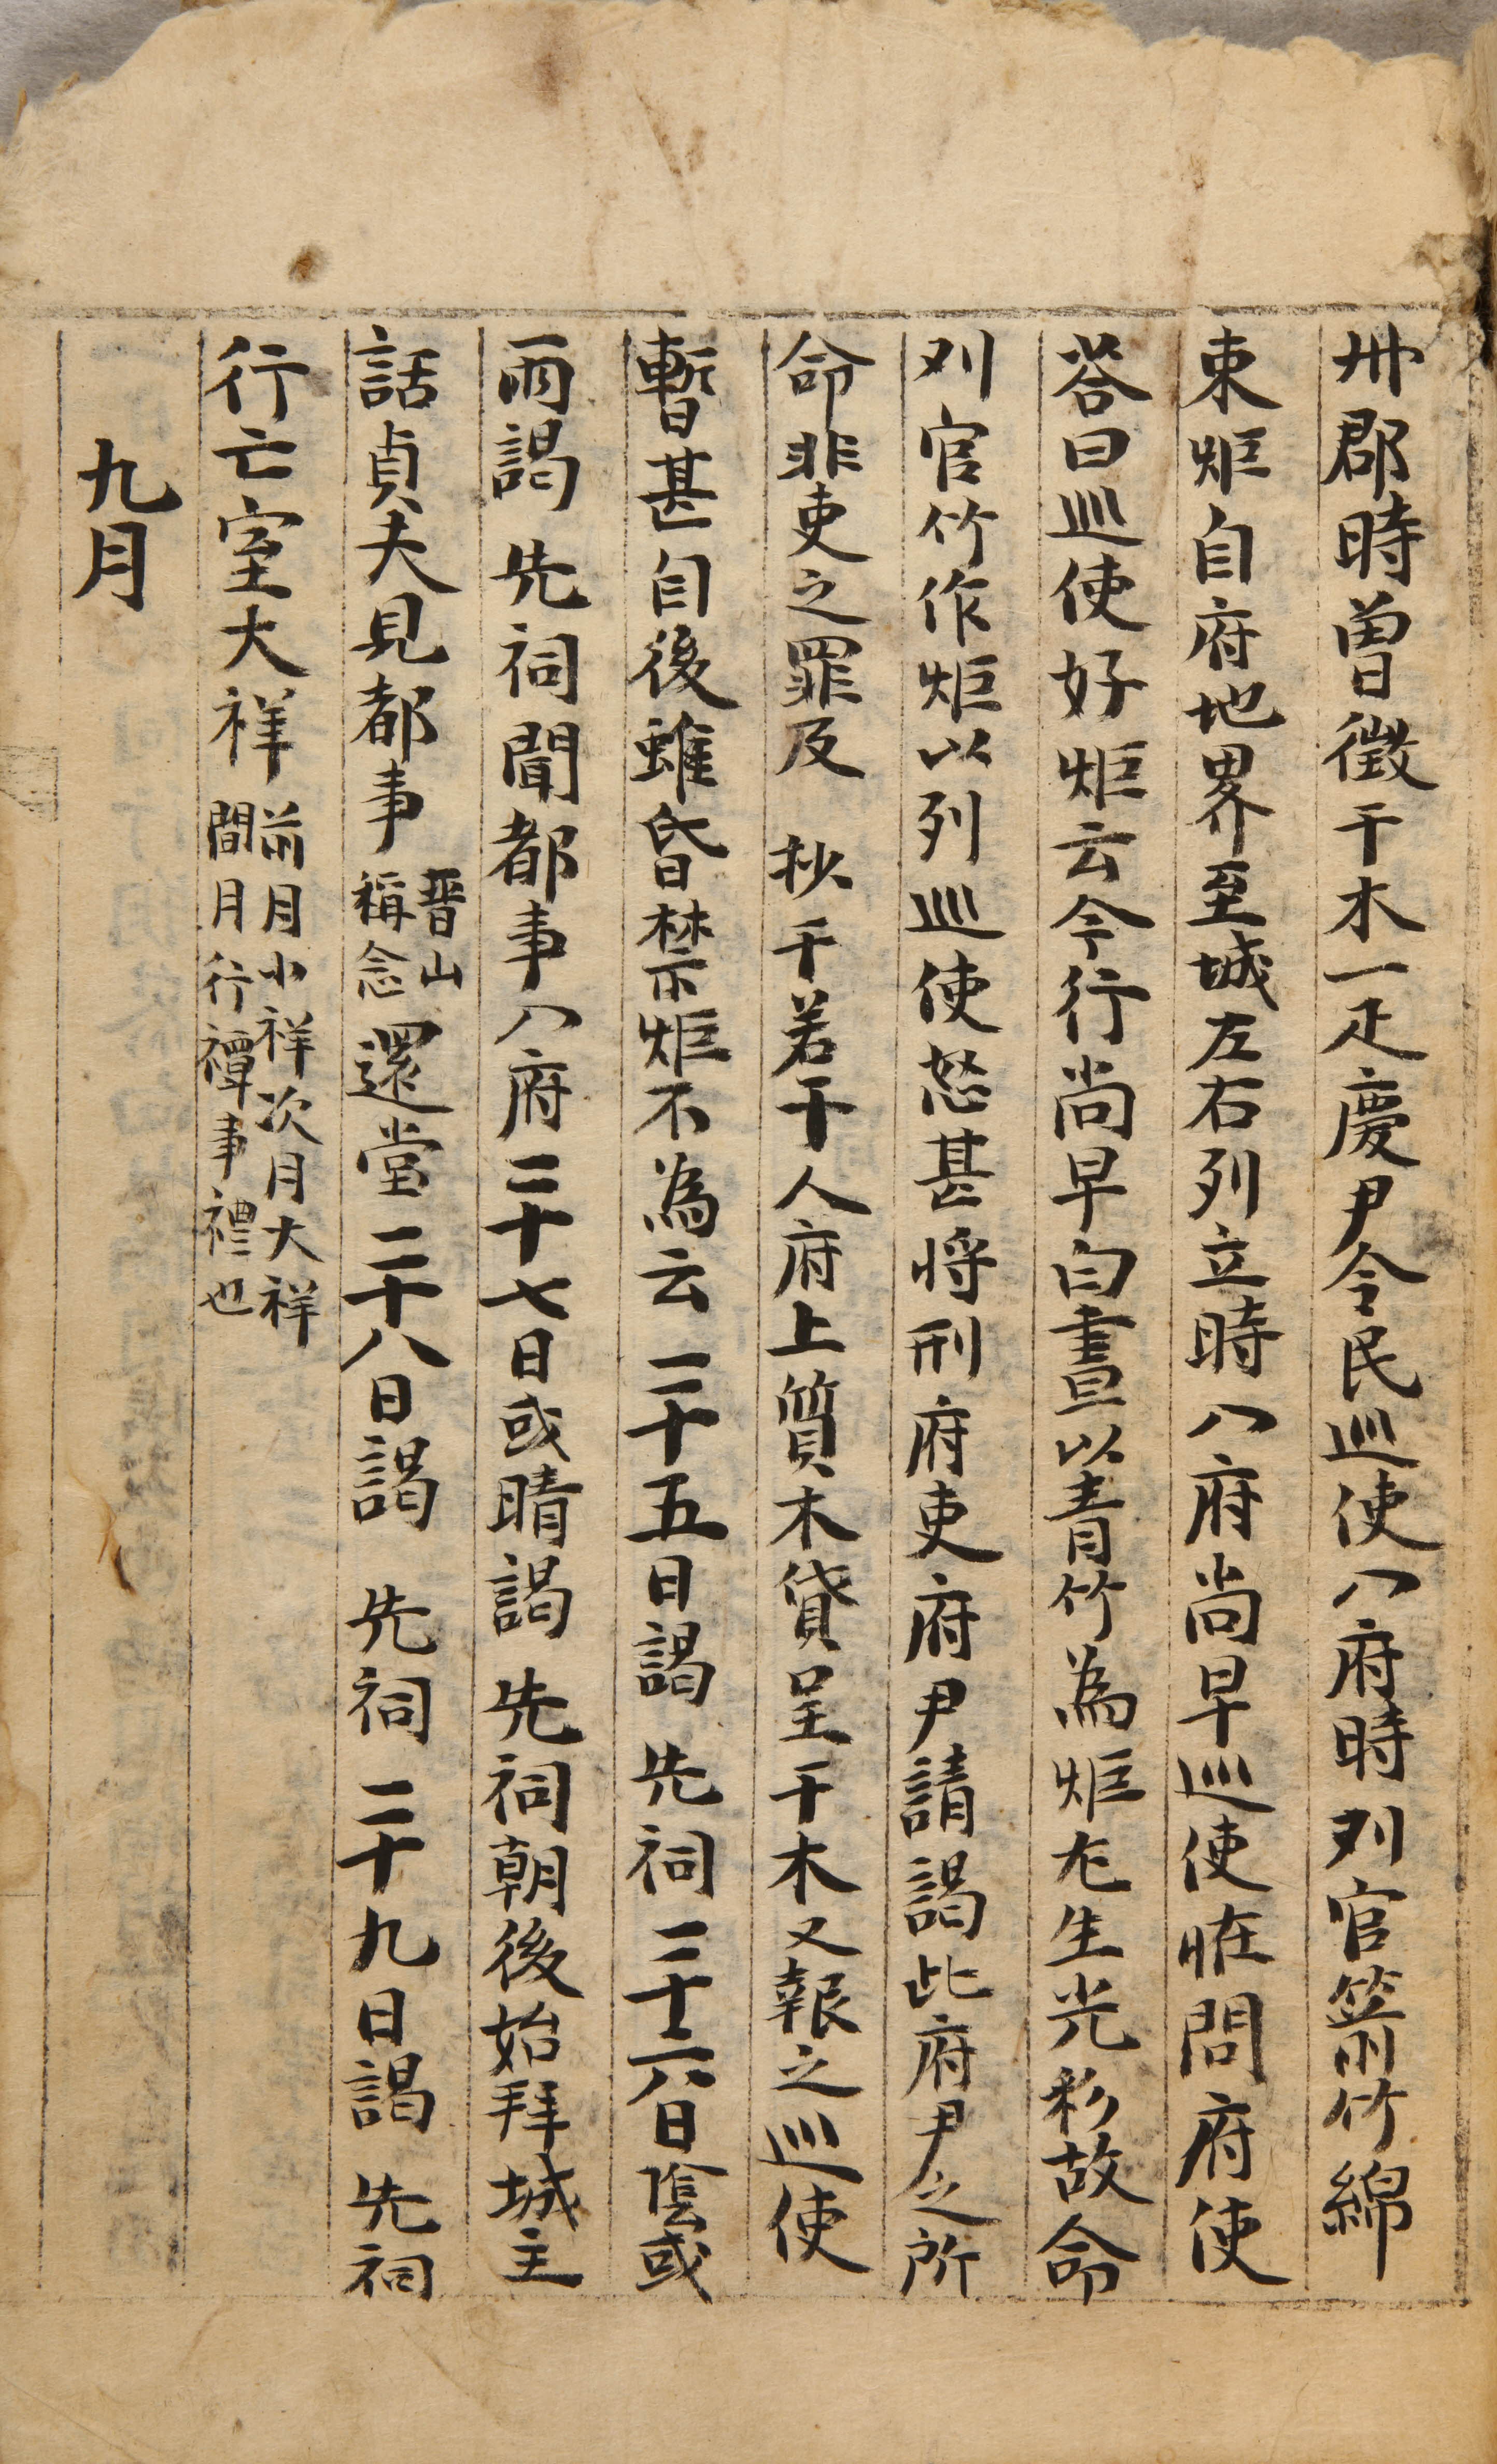 卅郡時曾徵干木一疋慶尹令民巡使入府時刈官箭竹綿
束炬自府地界至城左右列立時入府尚早巡使恠問府使
荅曰巡使好炬云今行尚早白晝以青竹為炬尤生光彩故命
刈官竹作炬以列巡使怒甚將刑府吏府尹請謁此府尹之所
命非吏之罪及 抄千若干人府上質木貸呈干木又報之巡使
暫甚自後雖昏禁炬不為云二十五日謁 先祠二十六日陰或
雨謁 先祠聞都事入府二十七日或晴謁 先祠朝後始拜城主
話貞夫見都事晋山稱念還堂二十八日謁 先祠二十九日謁 先祠
行亡室大祥前月小祥次月大祥間月行禫事禮也
九月